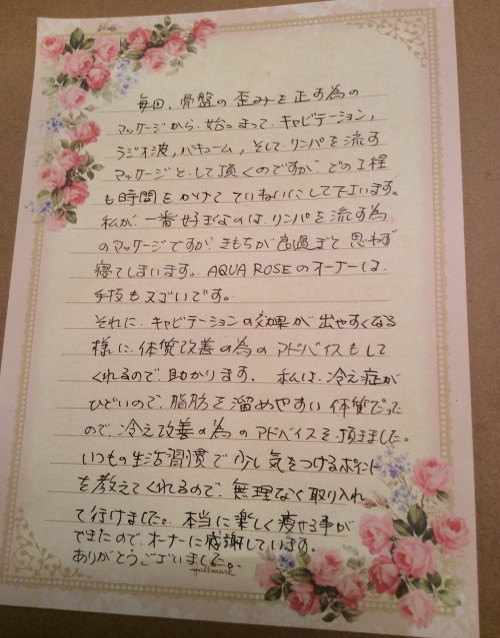 毎回、骨盤の歪みを正す為の
マッサージから始まって、キャビテーション,
ラジオ波,バキューム,そしてリンパを流す
マッサージとして頂くのですが、どの工程
も時間をかけてていねいにして下さいます。
私が一番好きなのは、リンパを流す為
のマッサージですが、きもちが良過ぎて思わず
寝てしまいます。AQUA ROSEのオーナーは、
手技もスゴいです。
それに、キャビテーションの効果が出やすくなる
様に、体質改善の為のアドバイスもして
くれるので、助かります。私は、冷え症が
ひどいので、脂肪を溜めやすい体質だった
ので、冷え改善の為のアドバイスを頂きました。
いつもの生活習慣で少し気をつけるポイント
を教えてくれるので、無理なく取り入れ
て行けました。本当に楽しく痩せる事が
できたので、オーナーに感謝しています。
ありがとうございました。
Hallmark